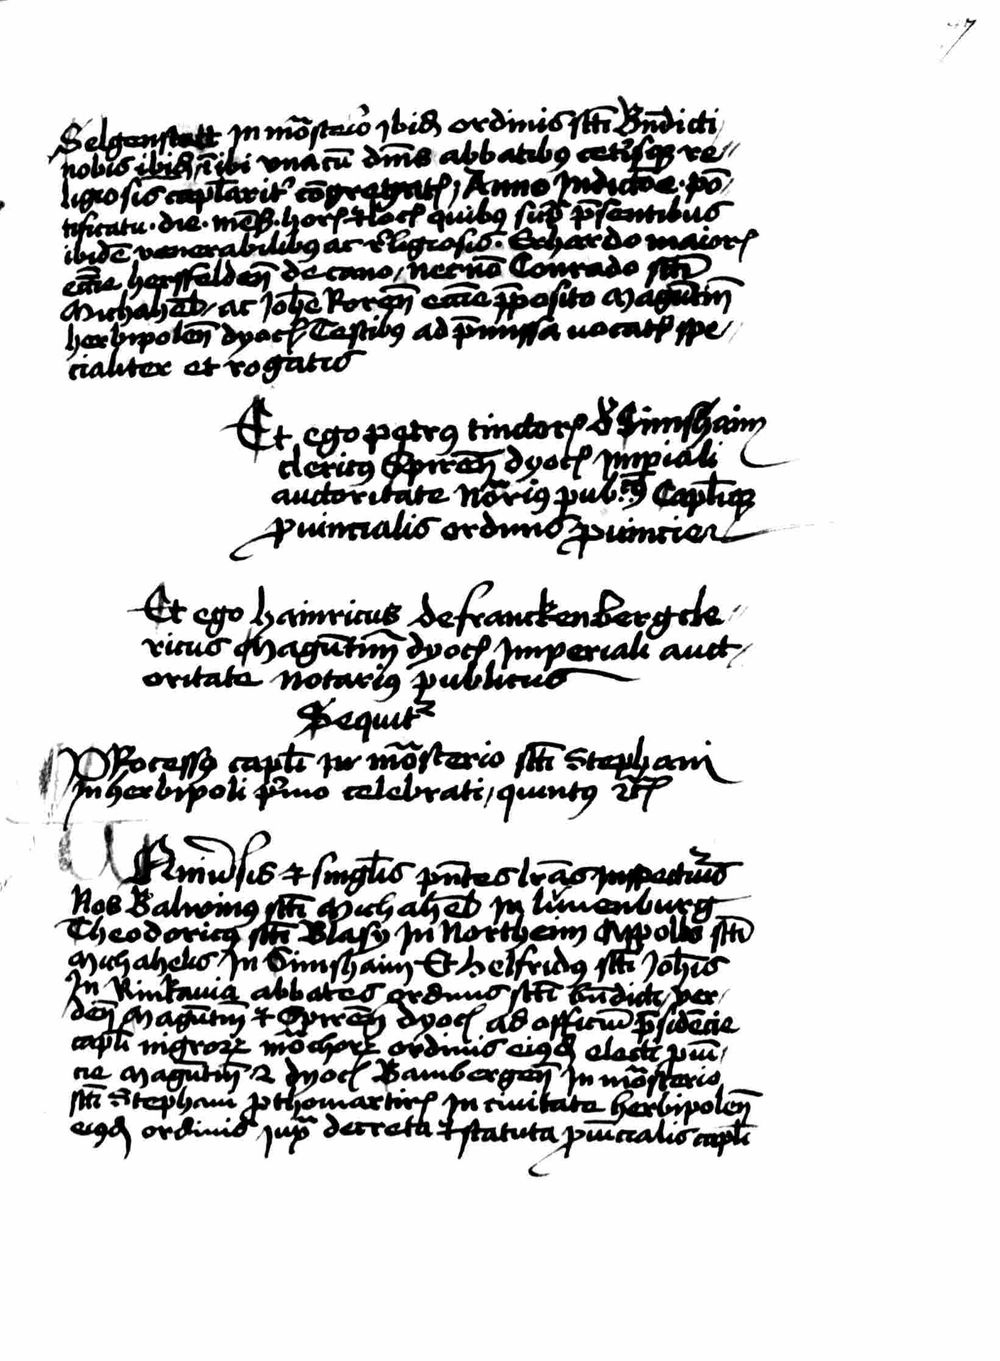 47
Selgenstatt in mōsterio ibid̄ ordinis scti Bn̄dicti
nobis ibid̄ ibi vnacū dn̄is abbatibꝫ ceterisqꝫ re
ligiosis capl̄arit' cōgregatꝭ, Anno Indictōe. pō
tificatu. die. mēs̄. horꝭ et locꝭ quibꝫ sup̄ p̄sentibus
ibidē venerabilibꝫ ac r̄ligiosis. Erhardo maiorꝭ
eccīe hersfelden̄ decano, necnō Conrado scti
Michahel̄, ac Joh̄e Roren̄ eccīe p̄posito Magūtin̄
herbipolen̄ dyocꝭ Testibꝫ ad p̄missa vocatꝭ spe
cialiter et rogatis
Et ego petrꝫ tinctorꝭ d' Sunshaim
clericꝫ Spiren̄ dyocꝭ Imp̄iali
auctoritate Nōriꝫ pub.cꝫ Capl̄iqꝫ
p̱uincialis ordinis p̱uincie
Et ego hainricus de franckenberg cle
ricus Magūtin̄ dyocꝭ Imperiali auct
oritate notariꝫ publicus
Sequit'
PRocessꝫ capl̄i in mōsterio scti Stephani
In herbipoli p'mo celebrati, quintꝫ etcꝭ
Uniūsis et singl̄is pn̄tes lr̄as inspectur'
Nos Balwinꝫ scti Michahel̄ in lunenburg
Theodoricꝫ scti Blasij In Northeim Appollo scti
Michahelis In Sunshaim Et helfridꝫ scti Joh̄is
In Rinkauia abbates ordinis scti bn̄dicti, ver
den̄ Magūtin̄ et Spiren̄ dyocꝭ ad officiū p̄sidēcie
capl̄i nigrorꝝ mōchorꝝ ordinis eiꝰd̄ electi puī
cie Magūtin̄ et dyocꝭ Bambergen̄ In mōsterio
scti Stephani p̱thomartirꝭ In ciuitate herbipolen̄
eiꝰd̄ ordinis iuxͣ decreta et statuta p̱uīcialis capl̄i